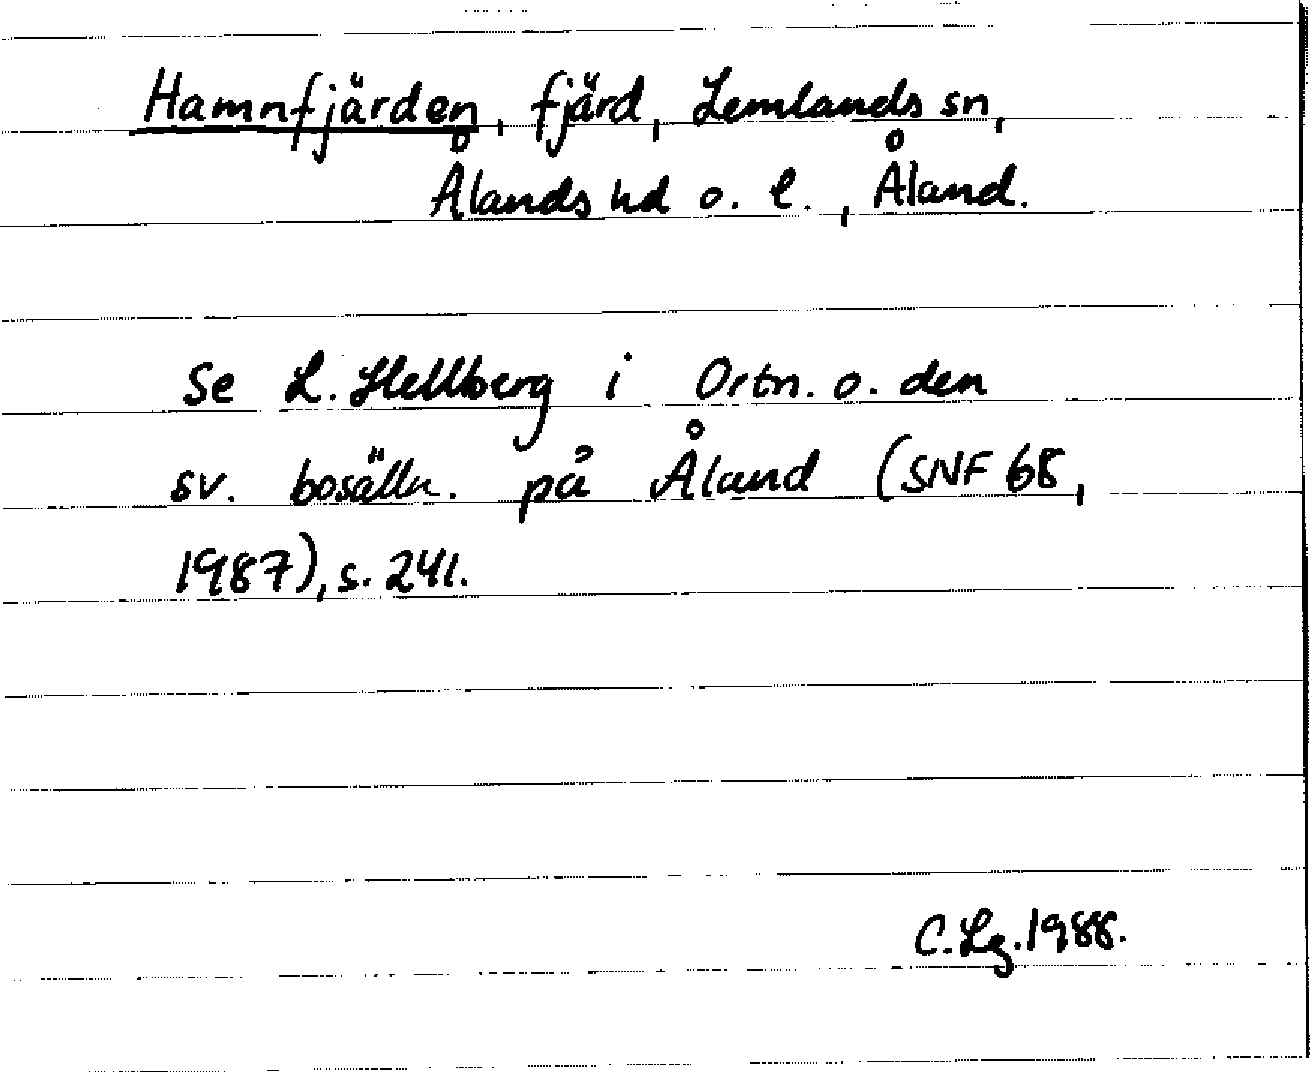 Hamnfjärden, fjärd, Lemlands sn,
Ålands hd o. l., Åland.
Se L. Hellberg i Ortn. o. den
sv. bosättn. på Åland (SNF 68,
1987), s. 241.
C. Lg. 1988.